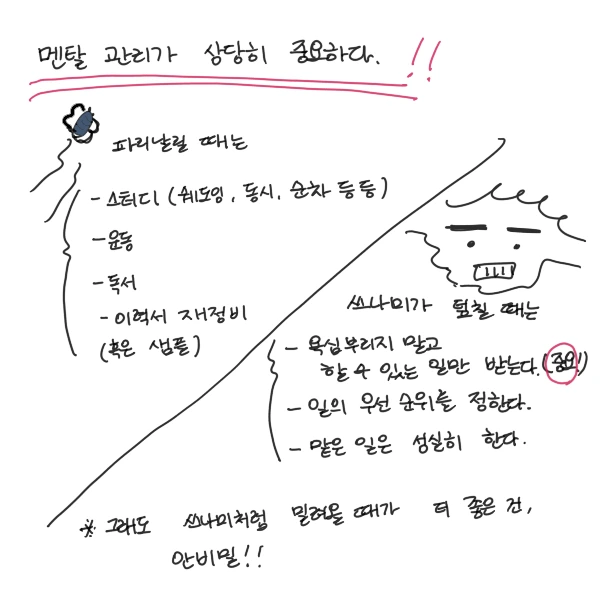 멘탈 관리가 상당히 중요하다.!!
파리날릴 때는
- 스터디 (쉐도잉, 동시, 순차 등등)
- 운동
- 독서
- 이력서 재정비
(혹은 샘플)
쓰나미가 덮칠 때는
- 욕심부리지 말고
할 수 있는 일만 받는다. (중요!)
- 일의 우선 순위를 정한다.
- 맡은 일은 성실히 한다.
* 그래도 쓰나미처럼 밀려올 때가 더 좋은 건,
안비밀!!